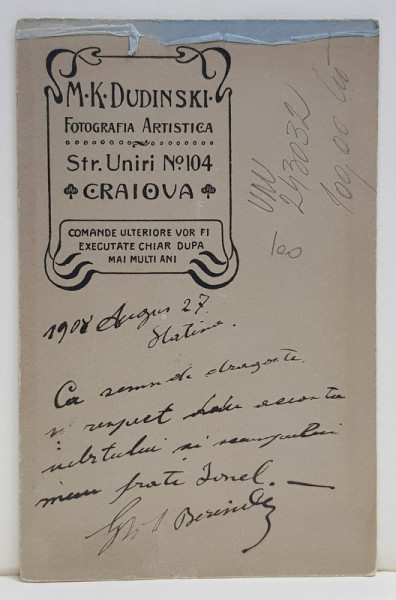 M·K·DUDINSKI·
FOTOGRAFIA ARTISTICA
Str. Uniri No 104
CRAIOVA
COMANDE ULTERIORE VOR FI
EXECUTATE CHIAR DUPA
MAI MULTI ANI
VIN
243032
100,00 lei
100
1908 Augus 27.
Slatina.
Ca semn de dragoste
si respect dau acesta
iubitului si scumpului
meu frate Ionel. —